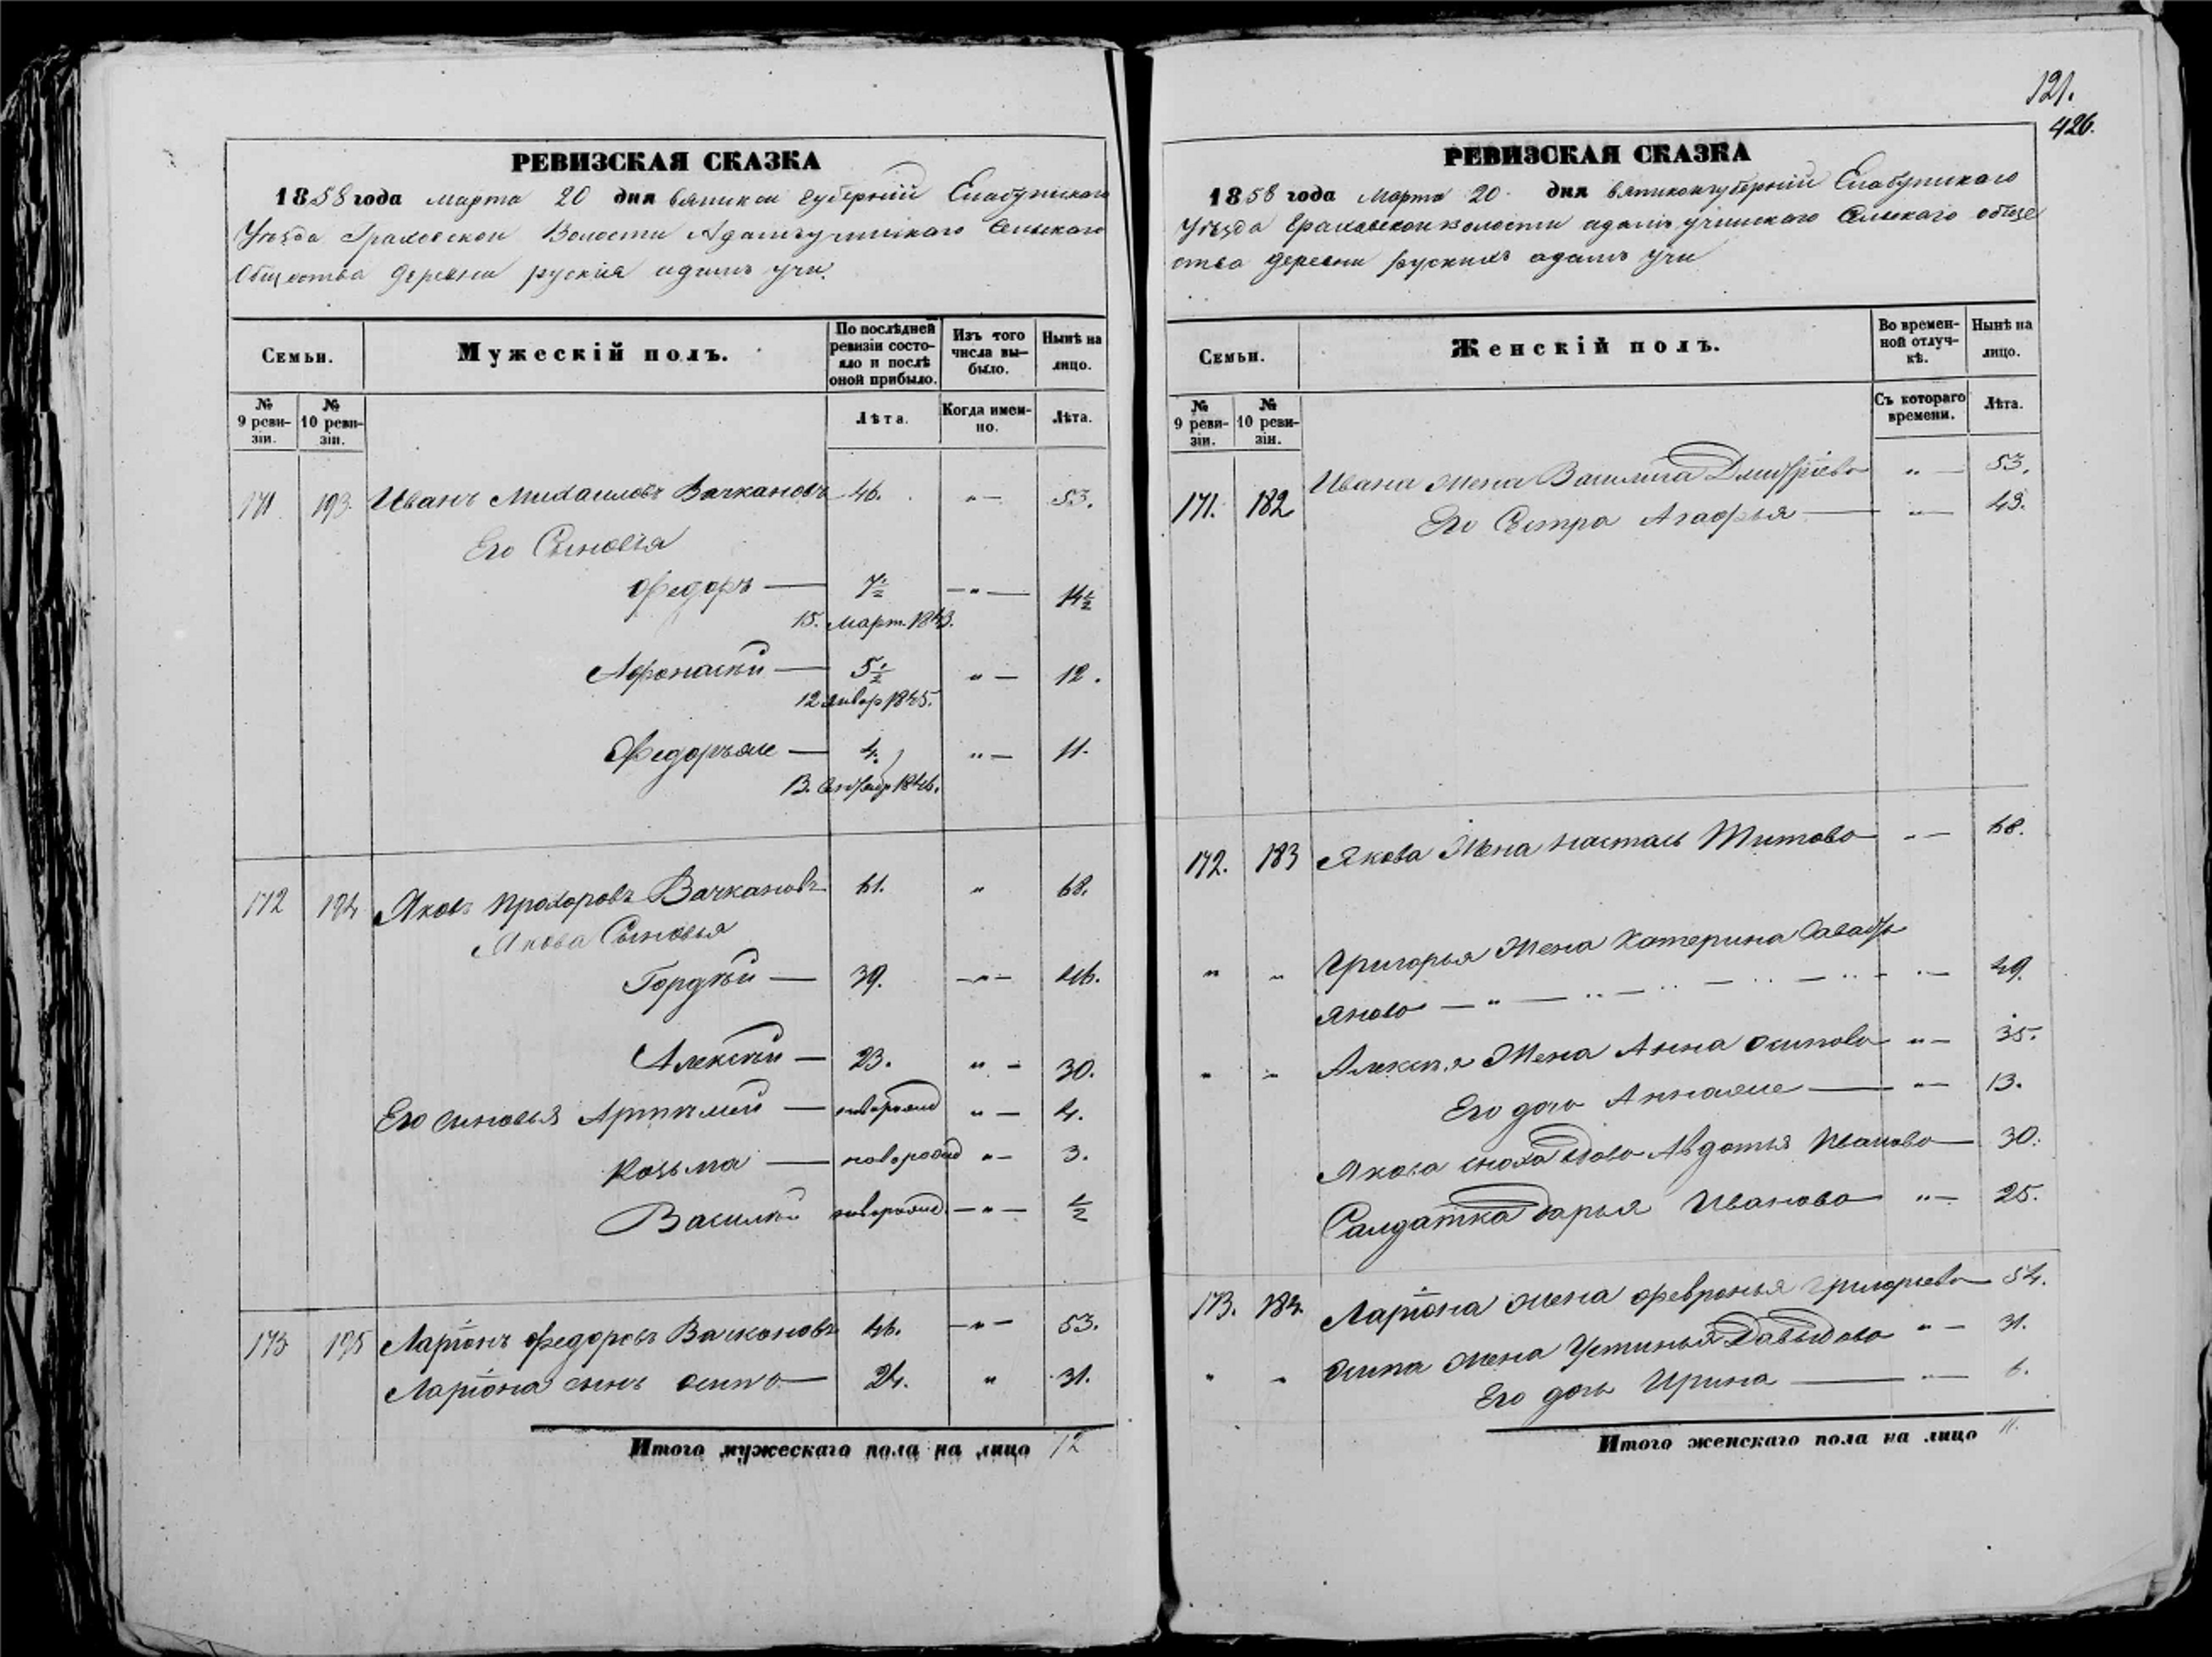 121.
426.
РЕВИЗСКАЯ СКАЗКА
1858 года марта 20 дня вятской губерніи Елабужскаго
Уѣзда Граховской Волости Адамъучинскаго Сельскаго
Общества деревни руския адамъ учи.
Семьи.
Мужескій полъ.
По послѣдней ревизіи состояло и послѣ оной прибыло.
Изъ того числа выбыло.
Нынѣ на лицо.
№ 9 ревизіи.
№ 10 ревизіи.
Лѣта.
Когда именно.
Лѣта.
171 193 Иванъ Михаиловъ Вачкановъ 46. "— 53.
Его Сыновья
Федоръ — 7½ —"— 14½
15. март. 1843.
Афонасѣй — 5½ "— 12.
12 январ 1845.
Федоръже — 4. "— 11.
13. Сентебр 1846.
172 194 Яковъ Прохоровъ Вачкановъ 61. " 68.
Якова Сыновья
Гордѣй — 39. —"— 46.
Алексѣй — 23. "— 30.
Его синовья Артѣмей — новорожд "— 4.
Козьма — новорожд "— 3.
Василѣй новорожд. —"— ½
173 195 Ларіонъ Федоровъ Вачкановъ 46. —"— 53.
Ларіона сынъ осипъ — 24. " 31.
Итого мужескаго пола на лицо 12
РЕВИЗСКАЯ СКАЗКА
1858 года Марта 20 дня вятской губерніи Елабужскаго
Уѣзда Граховской волости адамъ учинскаго Сельскаго обще
ства деревни рускихъ адамъ учи
Семьи.
Женскій полъ.
Во временной отлучкѣ.
Нынѣ на лицо.
№ 9 ревизіи.
№ 10 ревизіи.
Съ котораго времени.
Лѣта.
171. 182 Ивана жена Василиса Дмитріева "— 53.
Его Сестра Агафья — "— 43.
172. 183 Якова Жена настасья Титова "— 68.
" " Григорья Жена Катерина Савать
янова — " — 49.
" " Алексѣя Жена Анна осипова "— 35.
Его дочь Аннаже — "— 13.
Якова сноха вдова Авдотья Иванова — 30.
Салдатка дарья Иванова "— 25.
173. 184. Ларіона жена февронья григорьева — 54.
" " осипа жена Устинья Давыдова "— 31.
Его дочь Ирина — "— 6.
Итого женскаго пола на лицо 11.